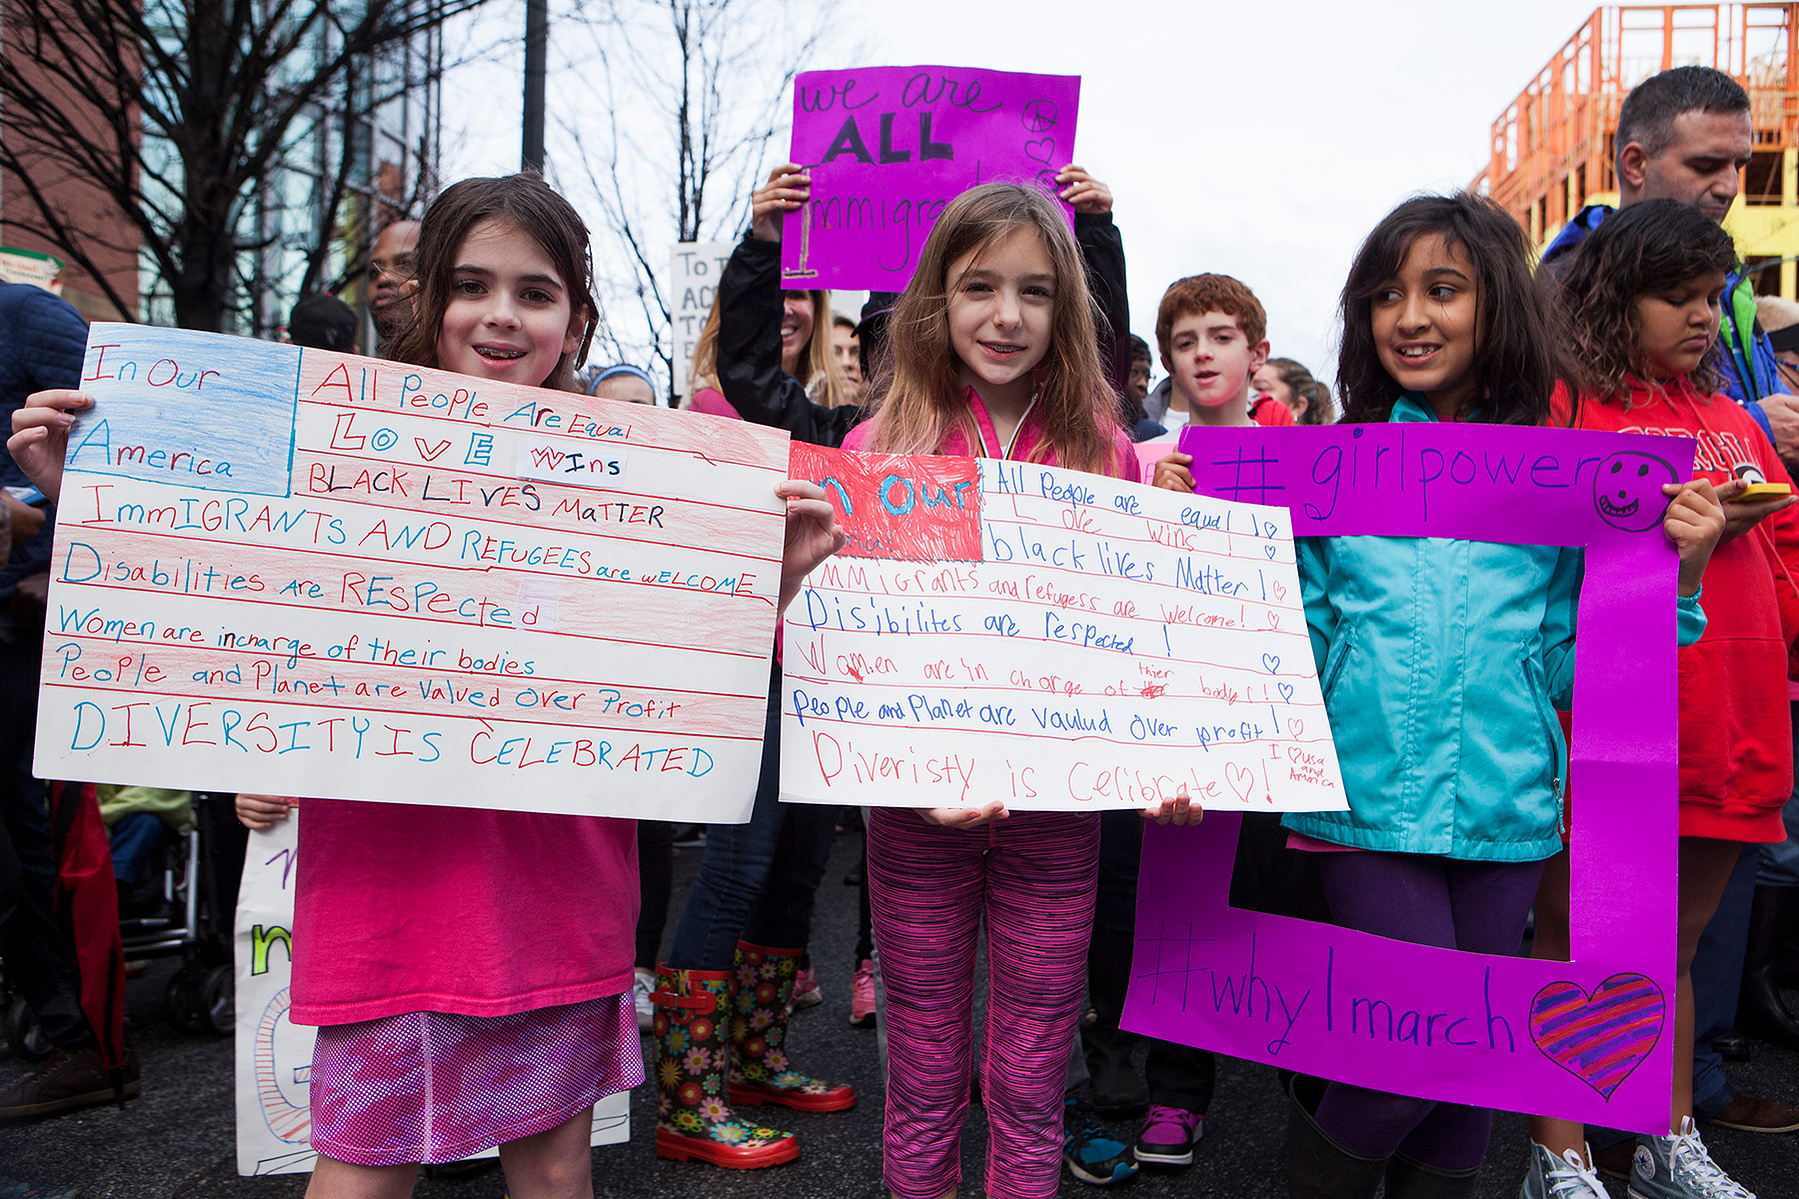 we are
ALL
To
AC
To
In Our
America
All People Are Equal
Love Wins
BLACK LIVES MaTTER
ImmIGRANTs AND REFUGEES are WELCOME
Disabilities are RESPected
Women are incharge of their bodies
People and Planet are Valued Over Profit
DIVERSITY IS CELEBRATED
In Our
All People are equal !
Love wins !
black lives Matter !
IMMigrants and refugess are welcome!
Disibilites are respected !
Women are in charge of thier bodys!
People and Planet are Vaulud Over profit !
Diveristy is Celibrate !
I ♡ usa
and
America
#girlpower
#whyImarch